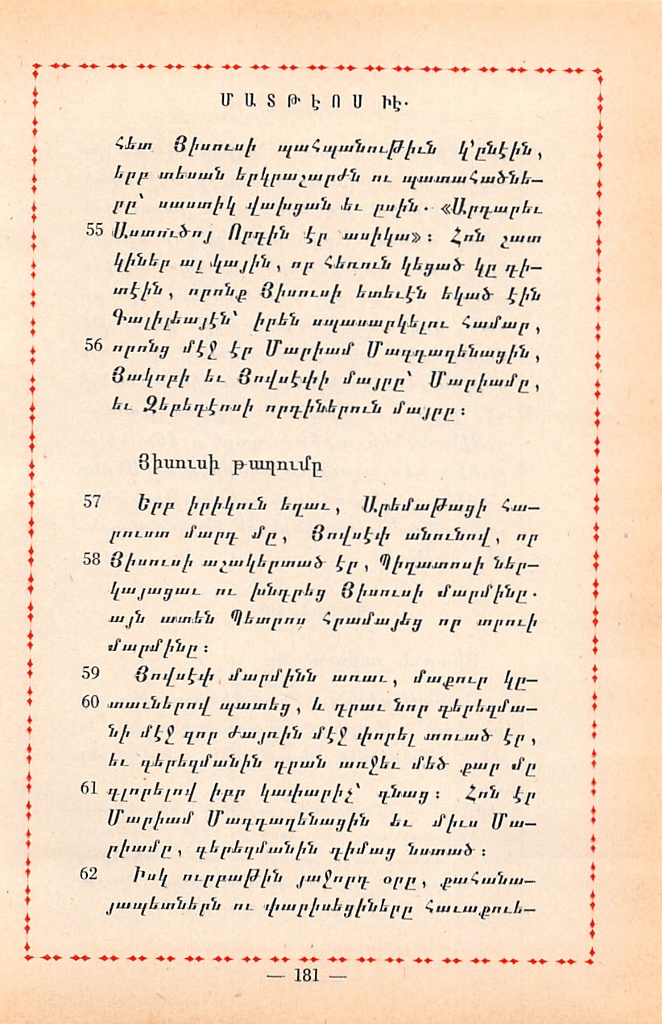 ՄԱՏԹԷՈՍ ԻԷ.
հետ Յիսուսի պահպանութիւն կ՚ընէին,
երբ տեսան երկրաշարժն ու պատահածնե—
րը՝ սաստիկ վախցան եւ ըսին. «Արդարեւ
55 Աստուծոյ Որդին էր ասիկա»: Հոն շատ
կիներ ալ կային, որ հեռուն կեցած կը դի—
տէին, որոնք Յիսուսի ետեւէն եկած էին
Գալիլեայէն՝ իրեն սպասարկելու համար,
56 որոնց մէջ էր Մարիամ Մագդաղենացին,
Յակոբի եւ Յովսէփի մայրը՝ Մարիամը,
եւ Զեբեդէոսի որդիներուն մայրը:
Յիսուսի թաղումը
57 Երբ իրիկուն եղաւ, Արեմաթացի հա—
րուստ մարդ մը, Յովսէփ անունով, որ
58 Յիսուսի աշակերտած էր, Պիղատոսի ներ—
կայացաւ ու խնդրեց Յիսուսի մարմինը.
այն ատեն Պետրոս հրամայեց որ տրուի
մարմինը:
59 Յովսէփ մարմինն առաւ, մաքուր կը—
60 տաւներով պատեց, և դրաւ նոր գերեզմա—
նի մէջ զոր ժայռին մէջ փորել տուած էր,
եւ գերեզմանին դրան առջեւ մեծ քար մը
61 գլորելով իբր կափարիչ՝ գնաց: Հոն էր
Մարիամ Մագդաղենացին եւ միւս Մա—
րիամը, գերեզմանին դիմաց նստած:
62 Իսկ ուրբաթին յաջորդ օրը, քահանա—
յապետներն ու փարիսեցիները հաւաքուե—
— 181 —